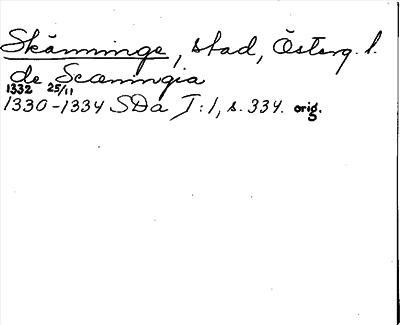 Skänninge, stad, Österg. l.
de Scæningia
1332 25/11
1330-1334 SDa I:1, s. 334. orig.